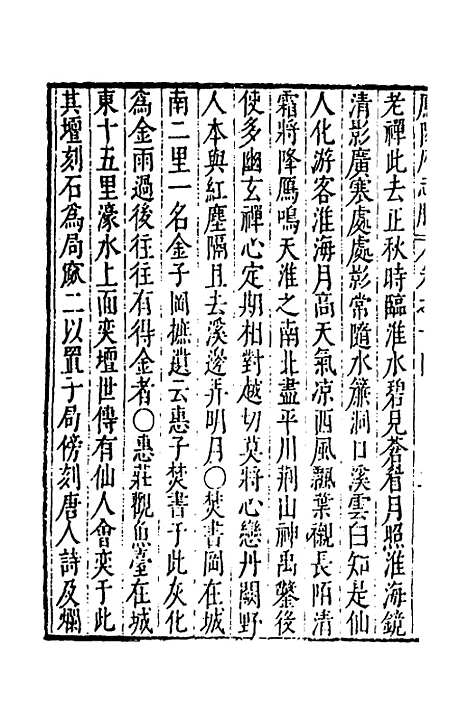 老禪此去正秋時臨淮水碧見蒼着月照淮海鏡
清影廣寒處處影常隨水簾洞口溪雲白知是仙
人化游客淮海月高天氣凉西風飄葉襯長陌清
霜將降鴈鳴天淮之南北盡平川荆山神禹鑿後
使多幽玄禪心定期相對越切莫將心戀丹闕野
人本與紅塵隔且去溪邊弄明月〇焚書岡在城
南二里一名金子岡摭遺云惠子焚書于此灰化
為金雨過後往往有得金者〇惠莊觀魚臺在城
東十五里濠水上面奕壇世傳有仙人會奕于此
其壇刻石為局窽二以置子局傍刻唐人詩及爛